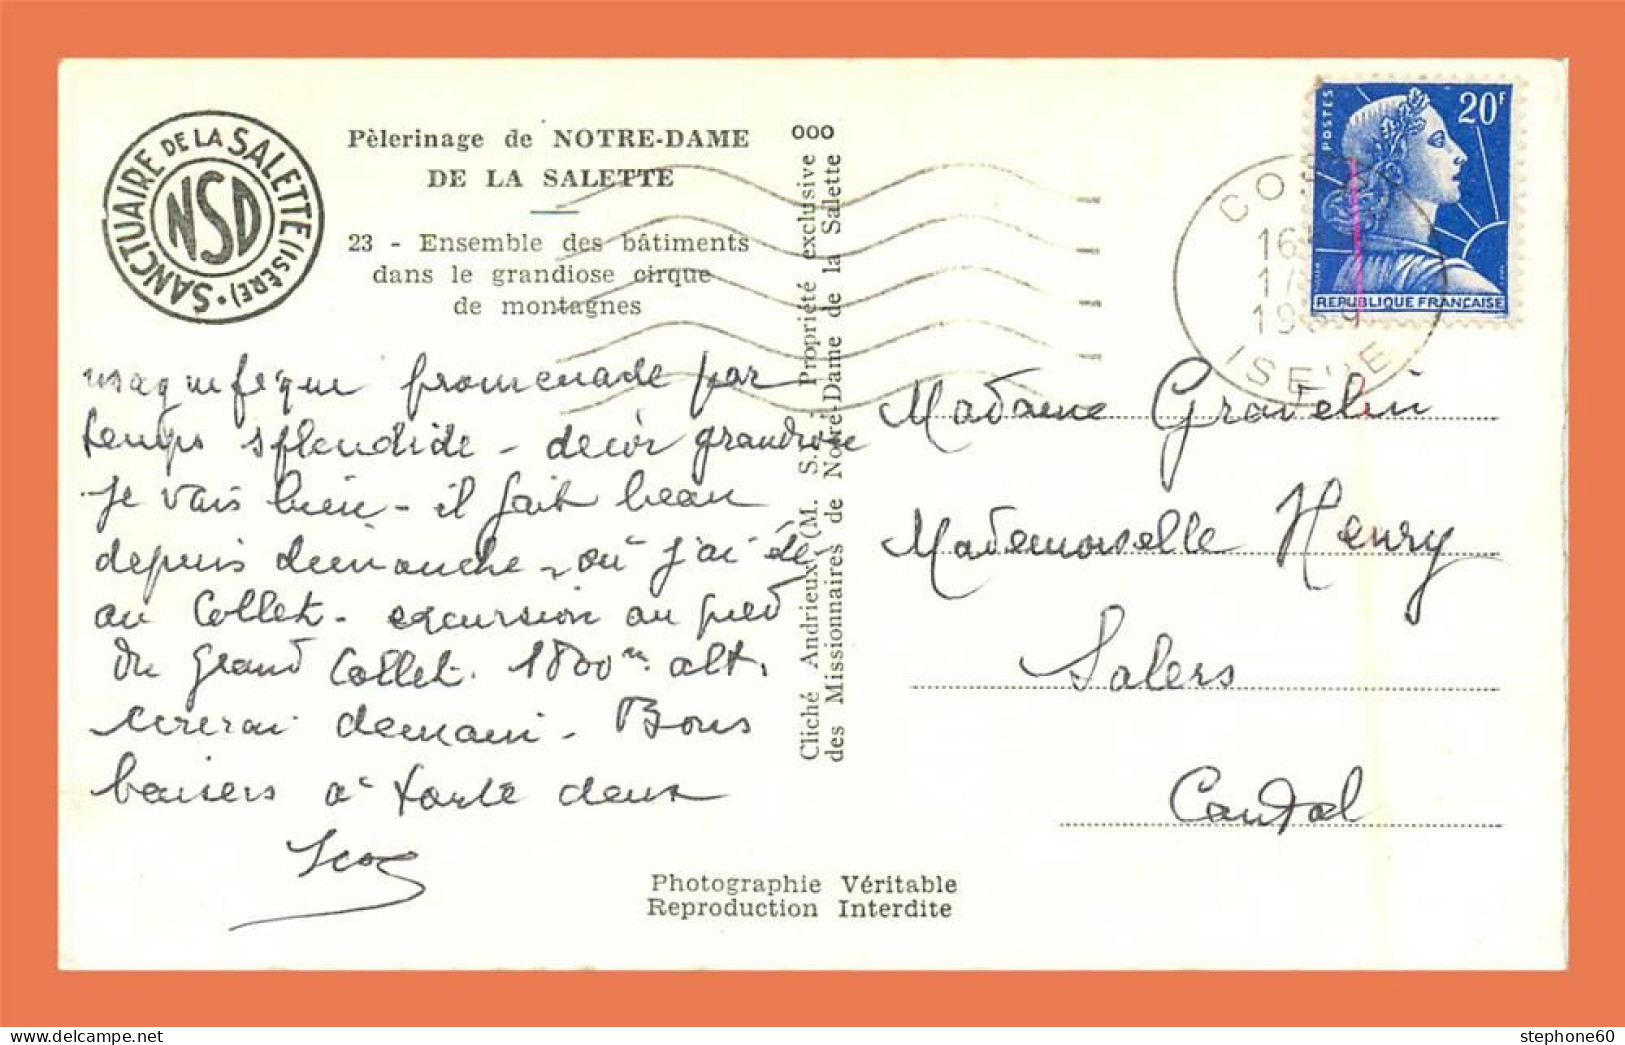 SANCTUAIRE DE LA SALETTE (ISÈRE).
NSD
Pèlerinage de NOTRE-DAME
DE LA SALETTE
23 - Ensemble des bâtiments
dans le grandiose cirque
de montagnes
magnifique promenade par
temps splendide - décor grandiose
Je vais bien - il fait beau
depuis dimanche - où j'ai été
au Collet - excursion au pied
du grand Collet. 1800 m. alt.
écrirai demain - Bons
baisers à toute deux
ooo
Cliché Andrieux (M. S.) Propriété exclusive
des Missionnaires de Notre-Dame de la Salette
POSTES
20F
REPUBLIQUE FRANÇAISE
ISERE
Madame Gravelin
Mademoiselle Henry
Salers
Cantal
Photographie Véritable
Reproduction Interdite
stephone60